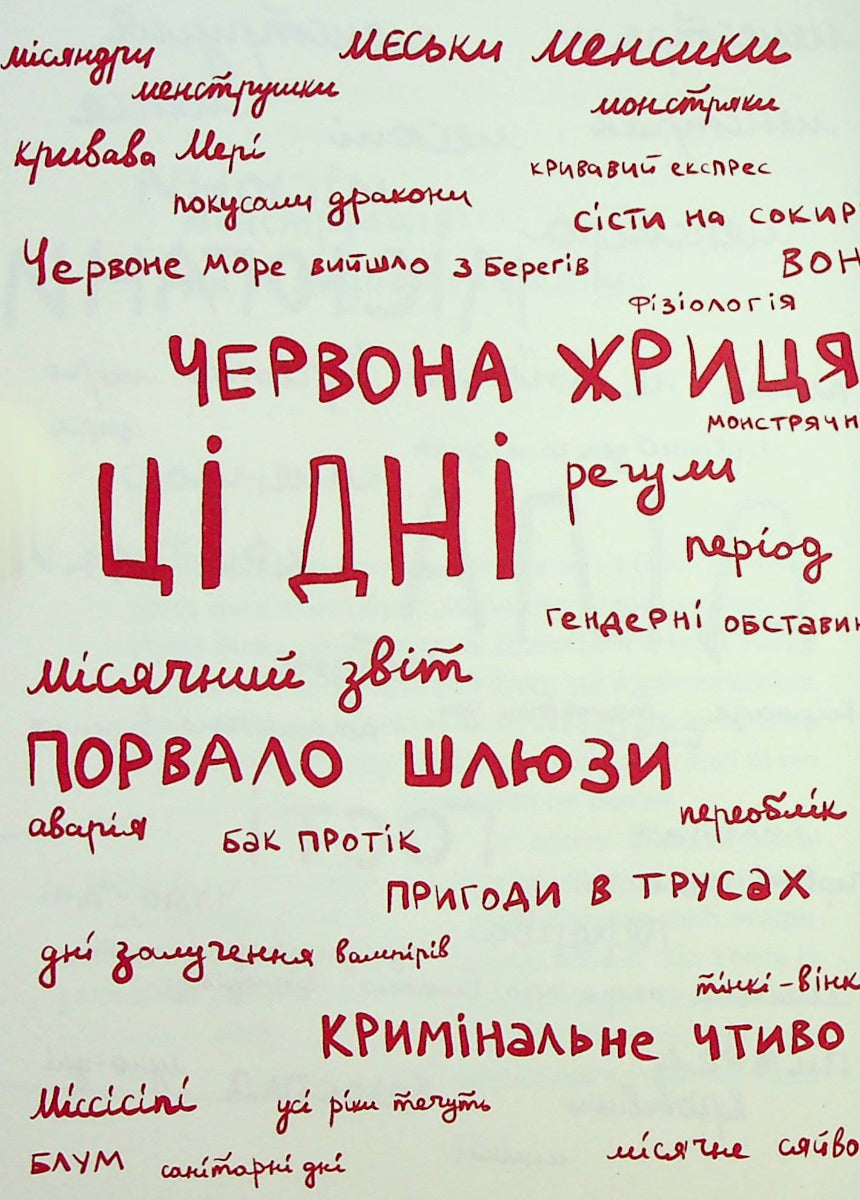 місяндри
меськи менсики
менструшки
монстряки
кривава Мері
кривавий експрес
покусали дракони
сісти на сокир
Червоне море вийшло з берегів
вон
фізіологія
ЧЕРВОНА ЖРИЦЯ
монстрячн
ЦІ ДНІ
регули
період
гендерні обставин
місячний звіт
ПОРВАЛО ШЛЮЗИ
аварія
бак протік
переоблік
ПРИГОДИ В ТРУСАХ
дні залучення вампірів
тінкі-вінк
КРИМІНАЛЬНЕ ЧТИВО
Міссісіпі
усі ріки течуть
БЛУМ
санітарні дні
місячне сяйво